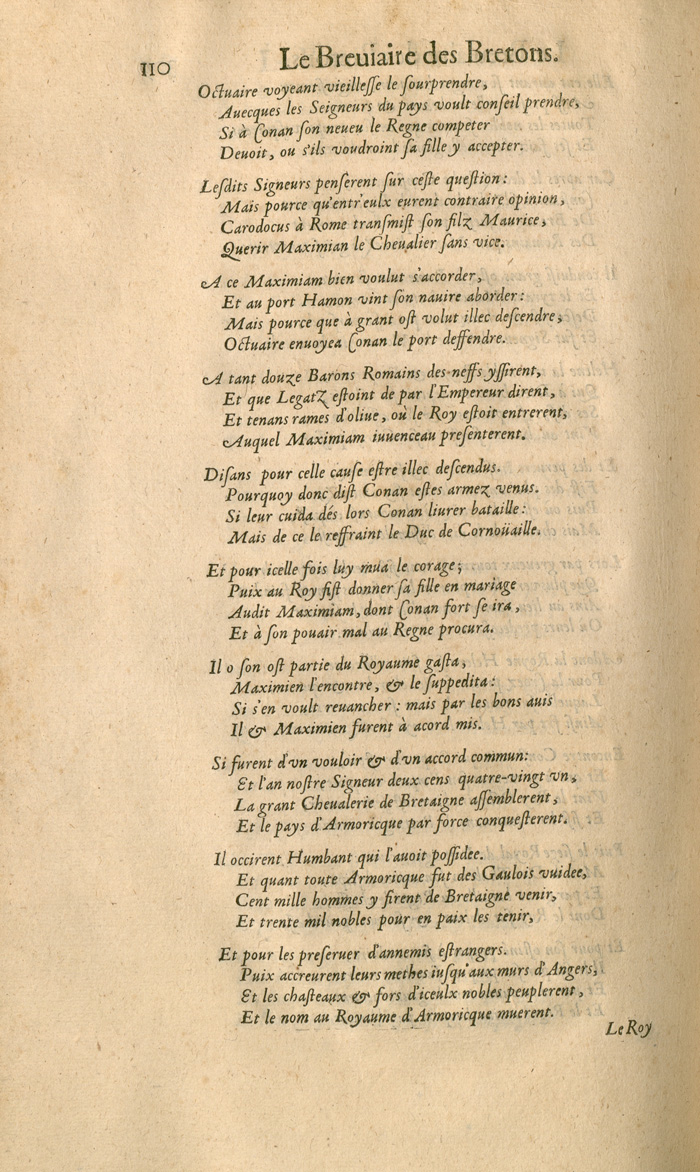 110
Le Breuiaire des Bretons.
Octuaire voyeant vieillesse le sourprendre,
Auecques les Seigneurs du pays voult conseil prendre,
Si à Conan son neueu le Regne competer
Deuoit, ou s'ils voudroint sa fille y accepter.
Lesdits Signeurs penserent sur ceste question:
Mais pource qu'entr'eulx eurent contraire opinion,
Carodocus à Rome transmist son filz Maurice,
Querir Maximian le Cheualier sans vice.
A ce Maximiam bien voulut s'accorder,
Et au port Hamon vint son nauire aborder:
Mais pource que à grant ost volut illec descendre,
Octuaire enuoyea Conan le port deffendre.
A tant douze Barons Romains des neffs yssirent,
Et que Legatz estoint de par l'Empereur dirent,
Et tenans rames d'oliue, ou le Roy estoit entrerent,
Auquel Maximiam iuuenceau presenterent.
Disans pour celle cause estre illec descendus.
Pourquoy donc dist Conan estes armez venus.
Si leur cuida dés lors Conan liurer bataille:
Mais de ce le reffraint le Duc de Cornoüaille.
Et pour icelle fois luy mua le corage;
Puix au Roy fist donner sa fille en mariage
Audit Maximiam, dont Conan fort se ira,
Et à son pouair mal au Regne procura.
Il o son ost partie du Royaume gasta,
Maximien l'encontre, & le suppedita:
Si s'en voult reuancher: mais par les bons auis
Il & Maximien furent à acord mis.
Si furent d'vn vouloir & d'vn accord commun:
Et l'an nostre Signeur deux cens quatre-vingt vn,
La grant Cheualerie de Bretaigne assemblerent,
Et le pays d'Armoricque par force conquesterent.
Il occirent Humbant qui l'auoit possidee.
Et quant toute Armoricque fut des Gaulois vuidee,
Cent mille hommes y firent de Bretaigne venir,
Et trente mil nobles pour en paix les tenir,
Et pour les preseruer d'annemis estrangers.
Puix accreurent leurs methes iusqu'aux murs d'Angers,
Et les chasteaux & fors d'iceulx nobles peuplerent,
Et le nom au Royaume d'Armoricque muerent.
Le Roy